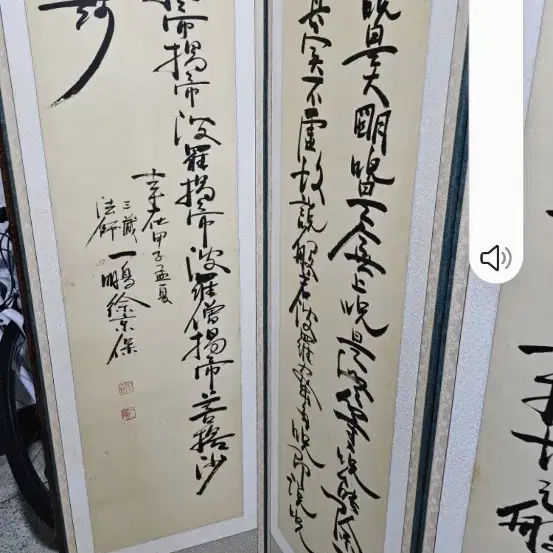 呪是大明呪是無上呪是無等等呪能除
真實不虛故說般若波羅蜜多呪即說呪
帝揭帝波羅揭帝波羅僧揭帝菩提沙
在甲子孟夏
三藏
法師
一鵬徐京保